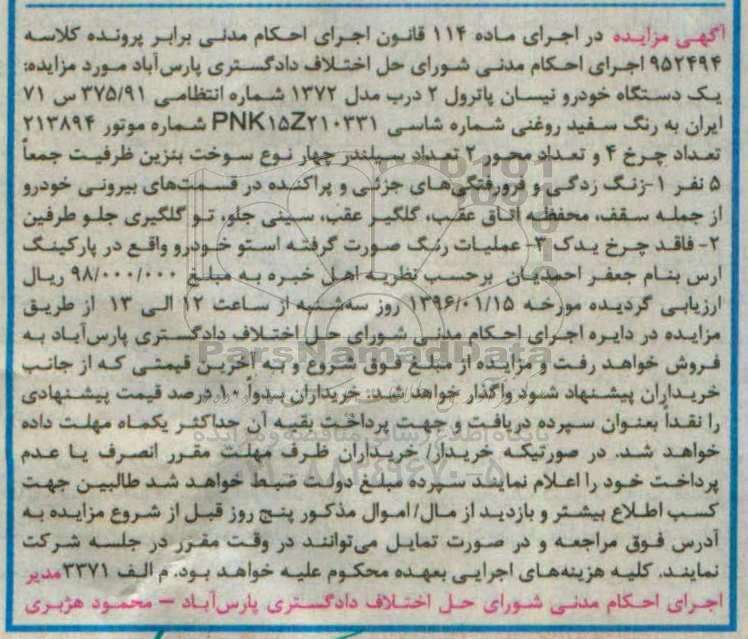 آگهی مزایده در اجرای ماده ۱۱۴ قانون اجرای احکام مدنی برابر پرونده کلاسه
۹۵۲۴۹۴ اجرای احکام مدنی شورای حل اختلاف دادگستری پارس‌آباد مورد مزایده:
یک دستگاه خودرو نیسان پاترول ۲ درب مدل ۱۳۷۲ شماره انتظامی ۳۷۵/۹۱ س ۷۱
ایران به رنگ سفید روغنی شماره شاسی PNK۱۵Z۲۱۰۳۳۱ شماره موتور ۲۱۳۸۹۴
تعداد چرخ ۴ و تعداد محور ۲ تعداد سیلندر چهار نوع سوخت بنزین ظرفیت جمعاً
۵ نفر ۱-زنگ زدگی و فرورفتگی‌های جزئی و پراکنده در قسمت‌های بیرونی خودرو
از جمله سقف، محفظه اتاق عقب، گلگیر عقب، سینی جلو، تو گلگیری جلو طرفین
۲- فاقد چرخ یدک ۳- عملیات رنگ صورت گرفته استو خودرو واقع در پارکینگ
ارس بنام جعفر احمدیان برحسب نظریه اهل خبره به مبلغ ۹۸/۰۰۰/۰۰۰ ریال
ارزیابی گردیده مورخه ۱۳۹۶/۰۱/۱۵ روز سه‌شنبه از ساعت ۱۲ الی ۱۳ از طریق
مزایده در دایره اجرای احکام مدنی شورای حل اختلاف دادگستری پارس‌آباد به
فروش خواهد رفت و مزایده از مبلغ فوق شروع و به آخرین قیمتی که از جانب
خریداران پیشنهاد شود واگذار خواهد شد. خریداران بدواً ۱۰ درصد قیمت پیشنهادی
را نقداً بعنوان سپرده دریافت و جهت پرداخت بقیه آن حداکثر یکماه مهلت داده
خواهد شد. در صورتیکه خریدار/ خریداران ظرف مهلت مقرر انصرف یا عدم
پرداخت خود را اعلام نمایند سپرده مبلغ دولت ضبط خواهد شد طالبین جهت
کسب اطلاع بیشتر و بازدید از مال/ اموال مذکور پنج روز قبل از شروع مزایده به
آدرس فوق مراجعه و در صورت تمایل می‌توانند در وقت مقرر در جلسه شرکت
نمایند. کلیه هزینه‌های اجرایی بعهده محکوم علیه خواهد بود. م الف ۳۳۷۱ مدیر
اجرای احکام مدنی شورای حل اختلاف دادگستری پارس‌آباد – محمود هژبری
ParsNamadData